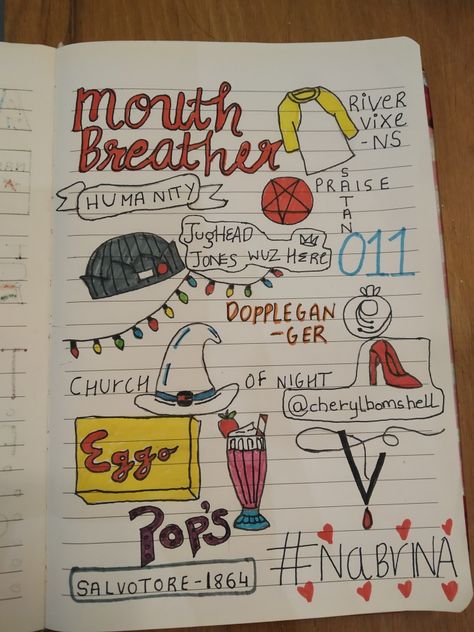 Mouth
Breather
RIVER
VIXE
-NS
HUMANITY
PRAISE
SATAN
JUGHEAD
JONES WUZ HERE
011
DOPPLEGAN
-GER
CHURCH OF NIGHT
@cherylbombshell
Eggo
V
POP'S
#NABRINA
SALVOTORE-1864